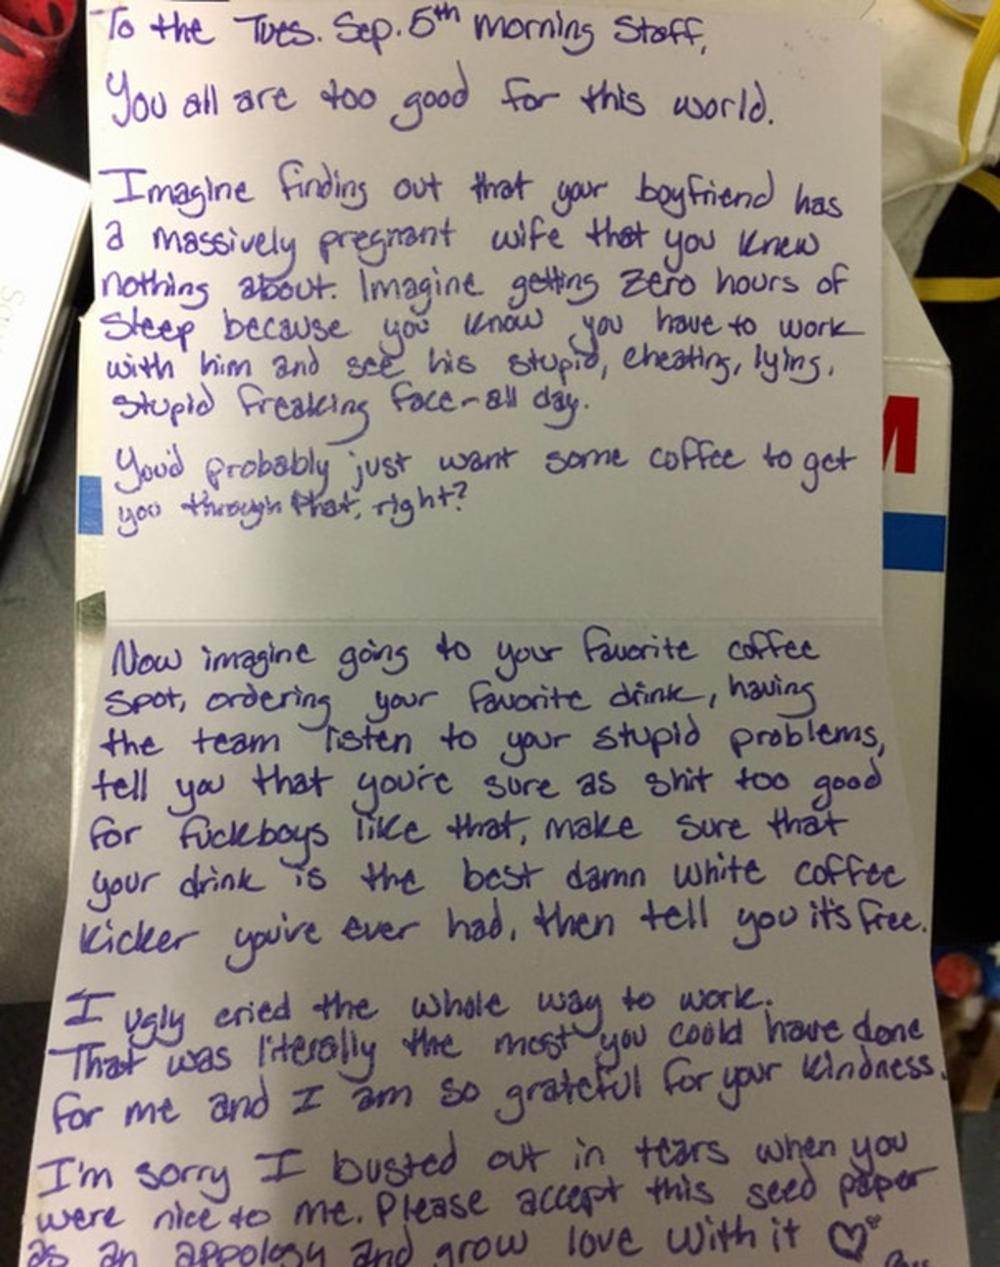 To the Tues. Sep. 5th morning Staff,
You all are too good for this world.
Imagine finding out that your boyfriend has
a massively pregnant wife that you knew
nothing about. Imagine getting zero hours of
sleep because you know you have to work
with him and see his stupid, cheating, lying,
stupid freaking face-all day.
You'd probably just want some coffee to get
you through that, right?
M
Now imagine going to your favorite coffee
spot, ordering your favorite drink, having
the team listen to your stupid problems,
tell you that you're sure as shit too good
for fuckboys like that, make sure that
your drink is the best damn white coffee
kicker you've ever had, then tell you it's free.
I ugly cried the whole way to work.
That was literally the most you could have done
for me and I am so grateful for your kindness.
I'm sorry I busted out in tears when you
were nice to me. Please accept this seed paper
as an appology and grow love with it ♡